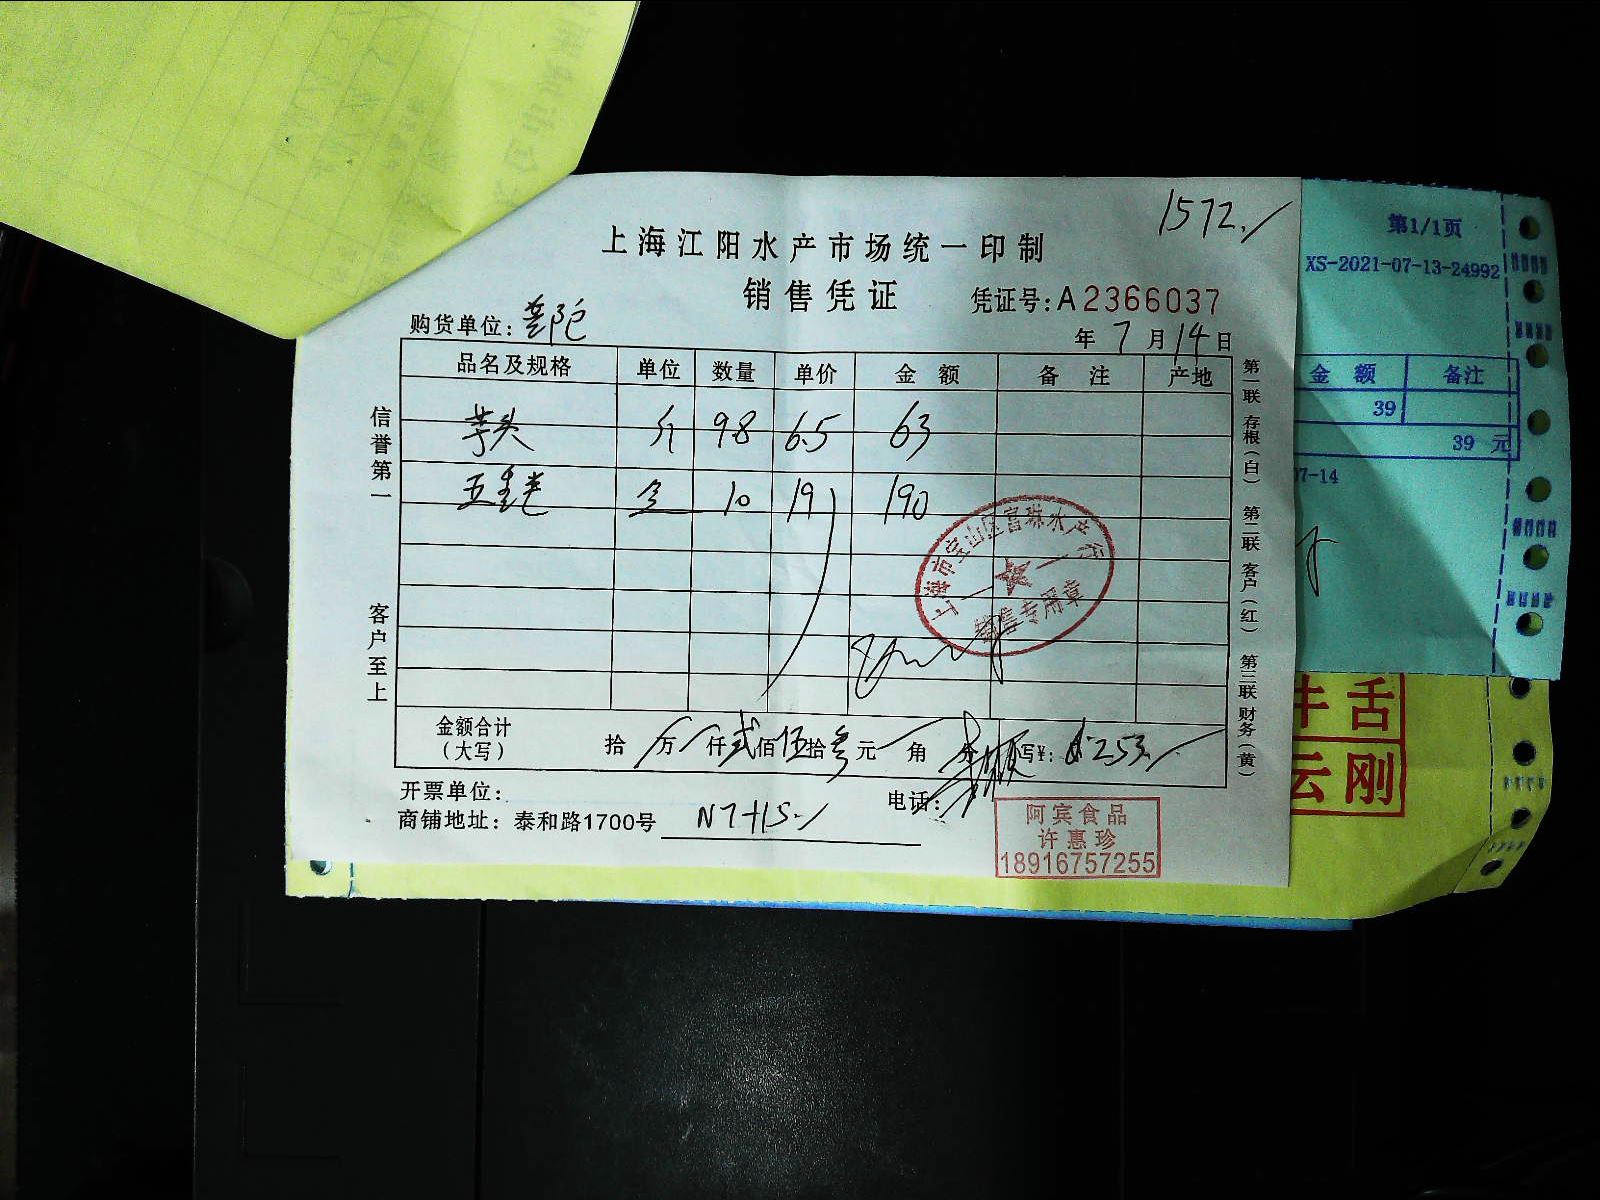 1572.
上海江阳水产市场统一印制
销售凭证
凭证号:A2366037
购货单位:
年 7 月 14 日
品名及规格 单位 数量 单价 金额 备注 产地
芋头 斤 98 6.5 63
10 19 190
信誉第一
客户至上
第一联 存根(白) 第二联 客户(红) 第三联 财务(黄)
上海市宝山区富珠水产行
销售专用章
金额合计
(大写)
拾 万 仟 弍 佰 伍 拾 叁 元 角 分 写¥: 253
开票单位:
电话:
商铺地址: 泰和路1700号
阿宾食品
许惠珍
18916757255
第1/1页
XS-2021-07-13-24992
金额 备注
39
39 元
07-14
牛舌
云刚